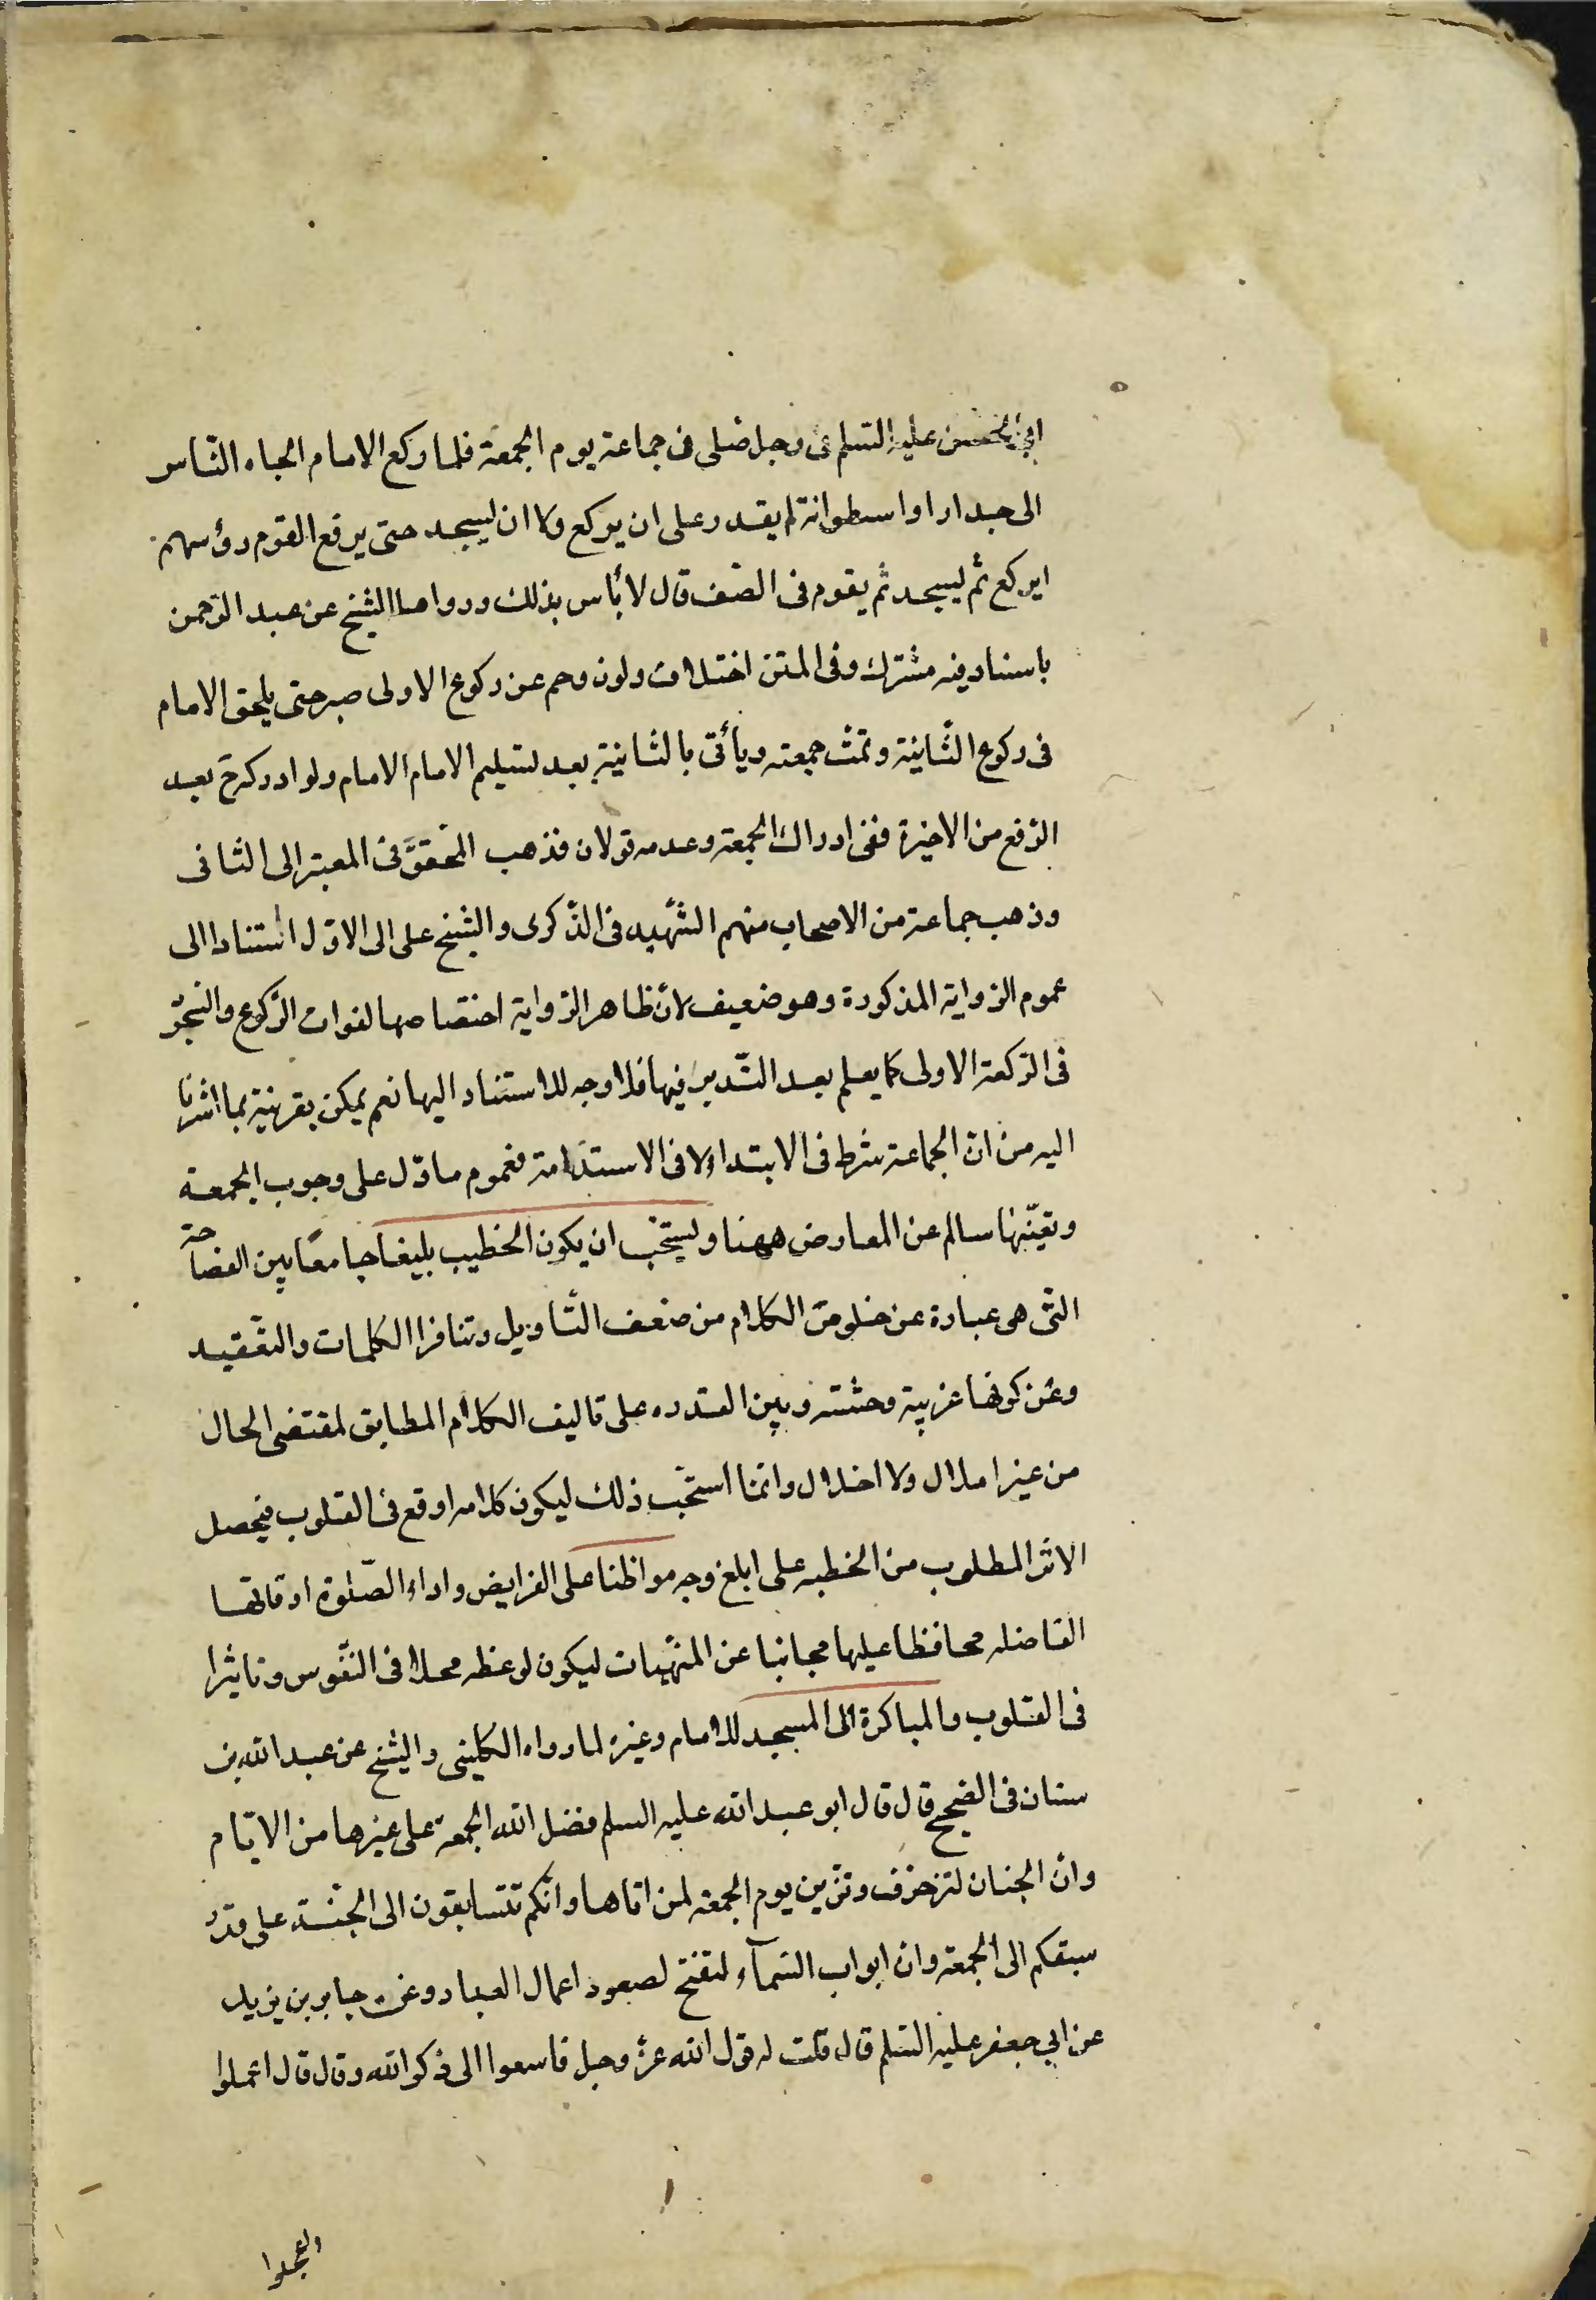 ابي الحسن عليه السلم فى رجل صلى فى جماعة يوم الجمعة فلما ركع الامام الجاه الناس
الى جدار او اسطوانة لم يقدر على ان يركع ولا ان يسجد حتى يرفع القوم رؤسهم
ايركع ثم ليسجد ثم يقوم فى الصف قال لا بأس بذلك ورواها الشيخ عن عبد الرحمن
باسناد فيه مشترك وفى المتن اختلاف ولو زوحم عن ركوع الاولى صبر حتى يلحق الامام
فى ركوع الثانية وتمت جمعته ويأتى بالثانية بعد تسليم الامام الامام ولو ادركه ح بعد
الرفع من الاخيرة ففى ادراك الجمعة وعدمه قولان فذهب المحقق فى المعتبر الى الثانى
وذهب جماعة من الاصحاب منهم الشهيد فى الذكرى والشيخ على الى الاول استنادا الى
عموم الرواية المذكورة وهو ضعيف لان ظاهر الرواية اختصاصها لفوات الركوع والسجود
فى الركعة الاولى كما يعلم بعد التدبر فيها فلا وجه للاستناد اليها نعم يمكن بقرينة بما اشرنا
اليه من ان الجماعة شرط فى الابتداء لا فى الاستدامة فعموم ما دل على وجوب الجمعة
وتعينها سالم عن المعارض ههنا ويستحب ان يكون الخطيب بليغا جامعا بين الفصاحة
التى هى عبارة عن خلوص الكلام من ضعف التاويل وتنافر الكلمات والتعقيد
وعن كونها غريبة وحشته وبين القدره على تاليف الكلام المطابق لمقتضى الحال
من غير املال ولا اخلال وانما استحب ذلك ليكون كلامه اوقع فى القلوب فيحصل
الاثر المطلوب من الخطبه على ابلغ وجه مواظنا على الفرايض واداء الصلوة اوقاتها
الفاضله محافظا عليها مجانبا عن المنهيات ليكون لوعظه محلا فى النفوس وتاثيرا
فى القلوب والمباكرة الى المسجد للامام وغيره لما رواه الكلينى والشيخ عن عبد الله بن
سنان فى الصحيح قال قال ابو عبد الله عليه السلم فضل الله الجمعة على غيرها من الايام
وان الجنان لتزخرف وتزين يوم الجمعة لمن اتاها وانكم تتسابقون الى الجنة على قدر
سبقكم الى الجمعة وان ابواب السمآء لتفتح لصعود اعمال العباد وعن جابر بن يزيد
عن ابي جعفر عليه السلم قال قلت له قول الله عز وجل فاسعوا الى ذكر الله وقال قال اعملوا